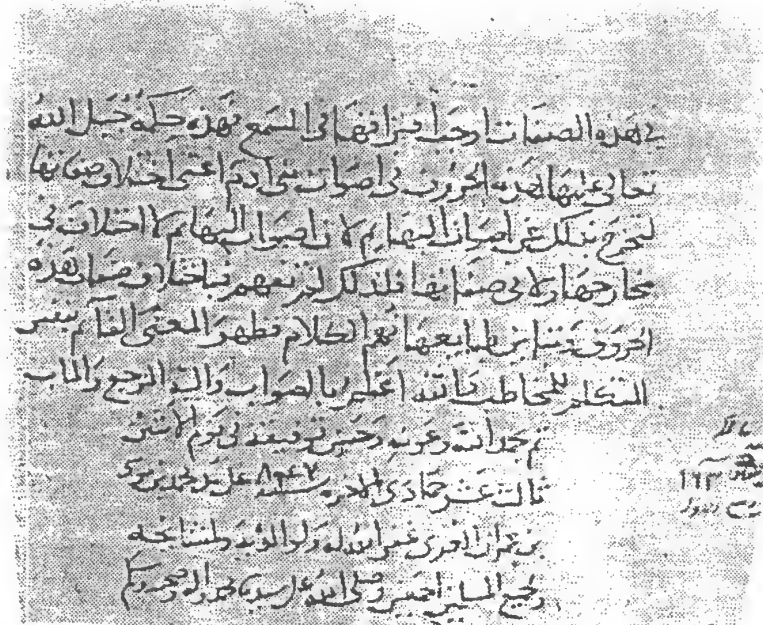 في هذه الصفات اوجب افتراقها في السمع فهذه حكمة جبل الله
تعالى عليها هذه الحروف في اصوات بني ادم اعني اختلاف صفاتها
لتخرج بذلك عن اصوات البهايم لان اصوات البهايم لا اختلاف في
مخارجها ولا في صفاتها فلذلك لم تفهم فباختلاف صفات هذه
الحروف وتباين طبايعها فهم الكلام فظهر المعنى القائم بنفس
المتكلم للمخاطب والله اعلم بالصواب واليه المرجع والماب
تم بحمد الله وعونه وحسن توفيقه في يوم الاثنين
ثالث عشر جمادى الاخرة سنة على يد محمد بن
بن عمران المقري غفر الله له ولوالديه ولمشايخه
ولجميع المسلمين اجمعين وصلى الله على سيدنا محمد واله وصحبه وسلم